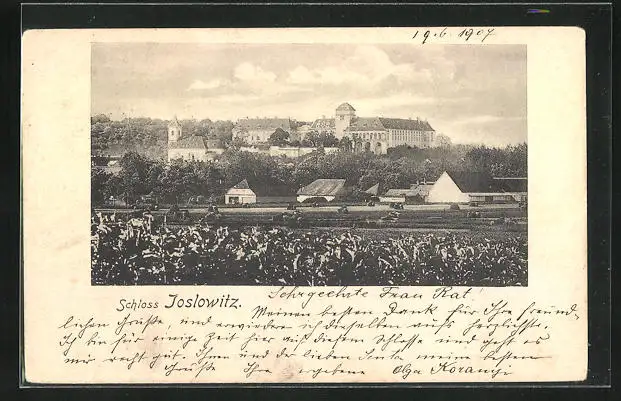 19.6.1907
Schloss Joslowitz.
Sehrgeehrte Frau Rat!
Meinen besten Dank für Ihre freund-
lichen Grüße, und erwidere ich dieselben aufs herzlichste.
Ich bin für einige Zeit hier auf diesem Schlosse und geht es
mir recht gut. Ihnen und den lieben meine besten
Grüße Ihre ergebene Olga